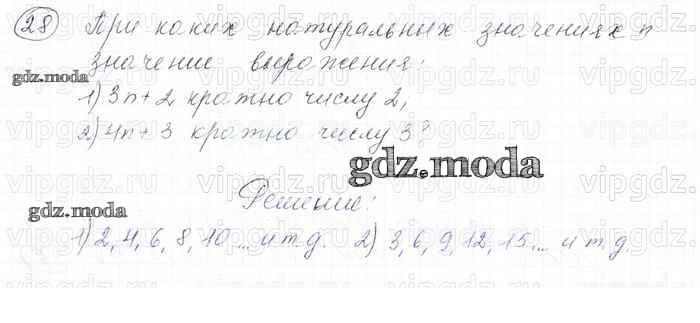 28 При каких натуральных значениях n
значение выражения:
gdz.moda
1) 3n+2 кратно числу 2,
2) 4n+3 кратно числу 3?
gdz.moda
Решение:
gdz.moda
1) 2, 4, 6, 8, 10 ... и т.д. 2) 3, 6, 9, 12, 15... и т.д.